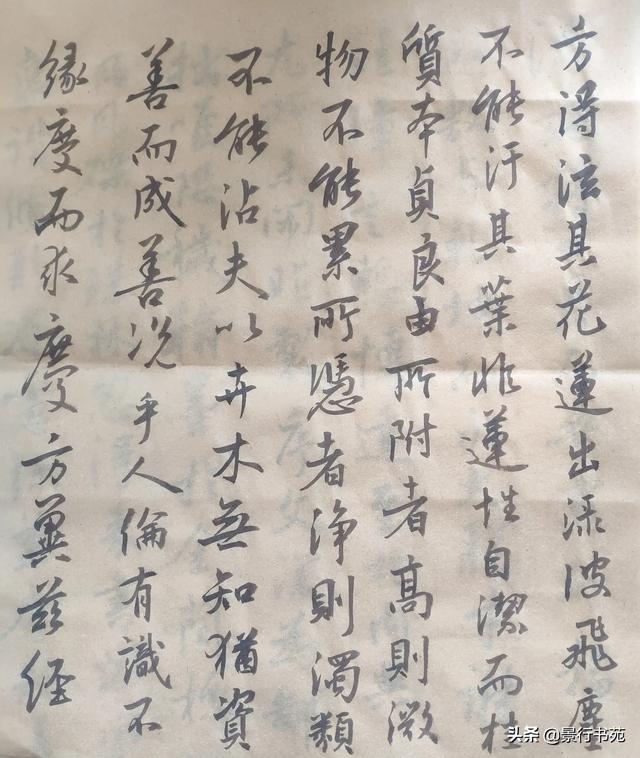 方得泫其花蓮出渌波飛塵
不能汙其葉非蓮性自潔而桂
質本貞良由所附者高則微
物不能累所憑者浄則濁類
不能沾夫以卉木無知猶資
善而成善况乎人倫有識不
緣慶而求慶方冀茲經
头条@景行书苑